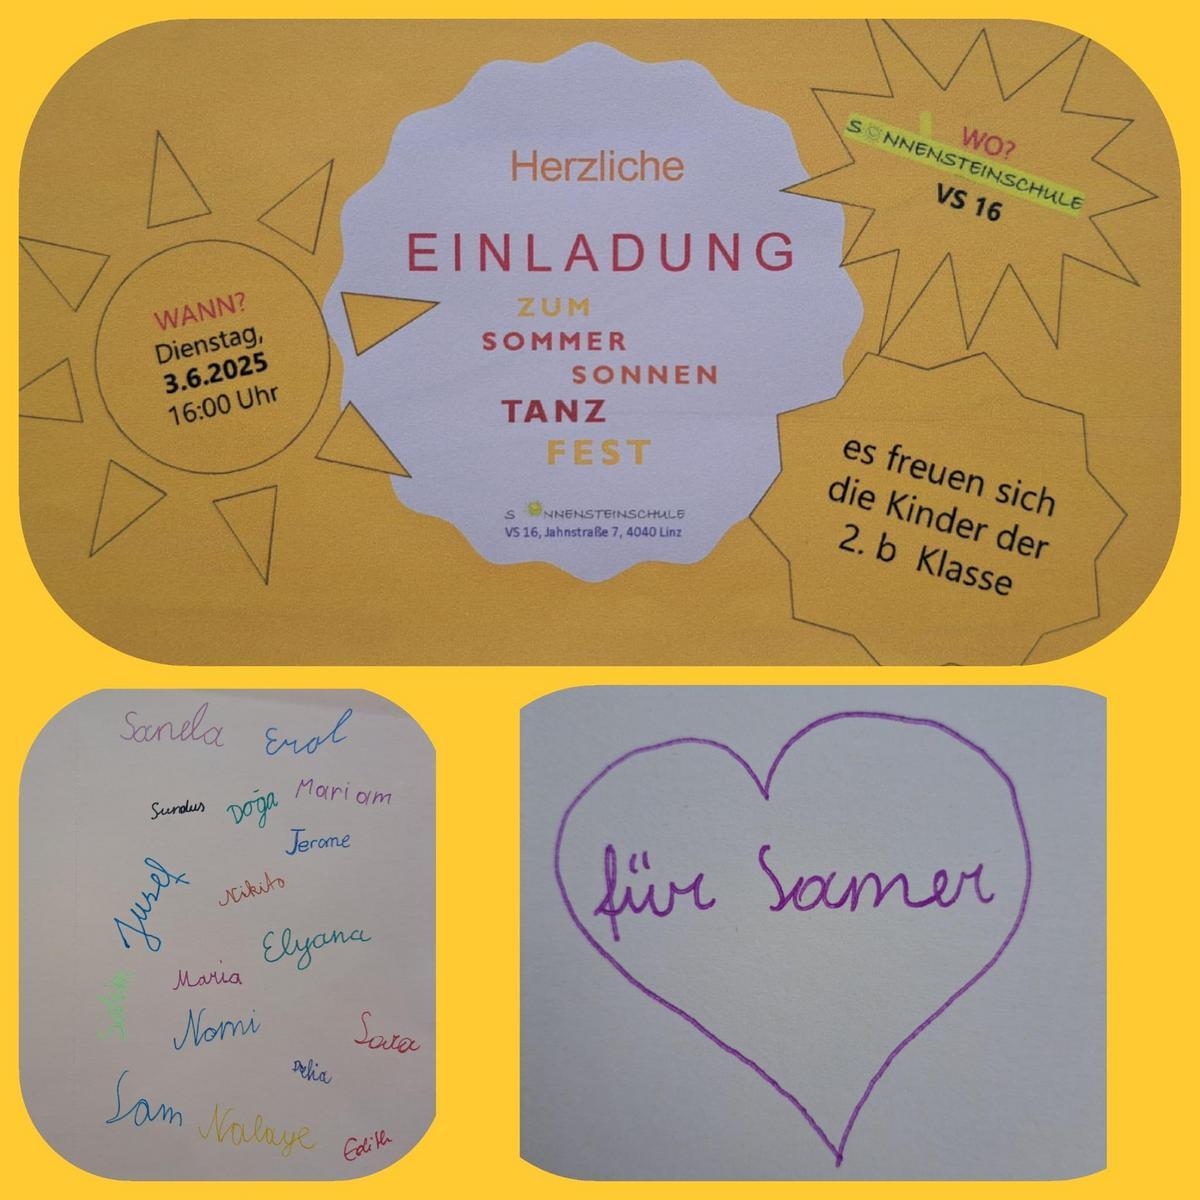 Herzliche
EINLADUNG
ZUM
SOMMER
SONNEN
TANZ
FEST
SONNENSTEINSCHULE
VS 16, Jahnstraße 7, 4040 Linz
WANN?
Dienstag,
3.6.2025
16:00 Uhr
WO?
SONNENSTEINSCHULE
VS 16
es freuen sich
die Kinder der
2. b Klasse
Sanela
Erol
Sundus
Doğa
Mariam
Jerome
Jusef
Nikita
Elyana
Maria
Nomi
Sara
Sam
Nalaye
Edith
für Samer